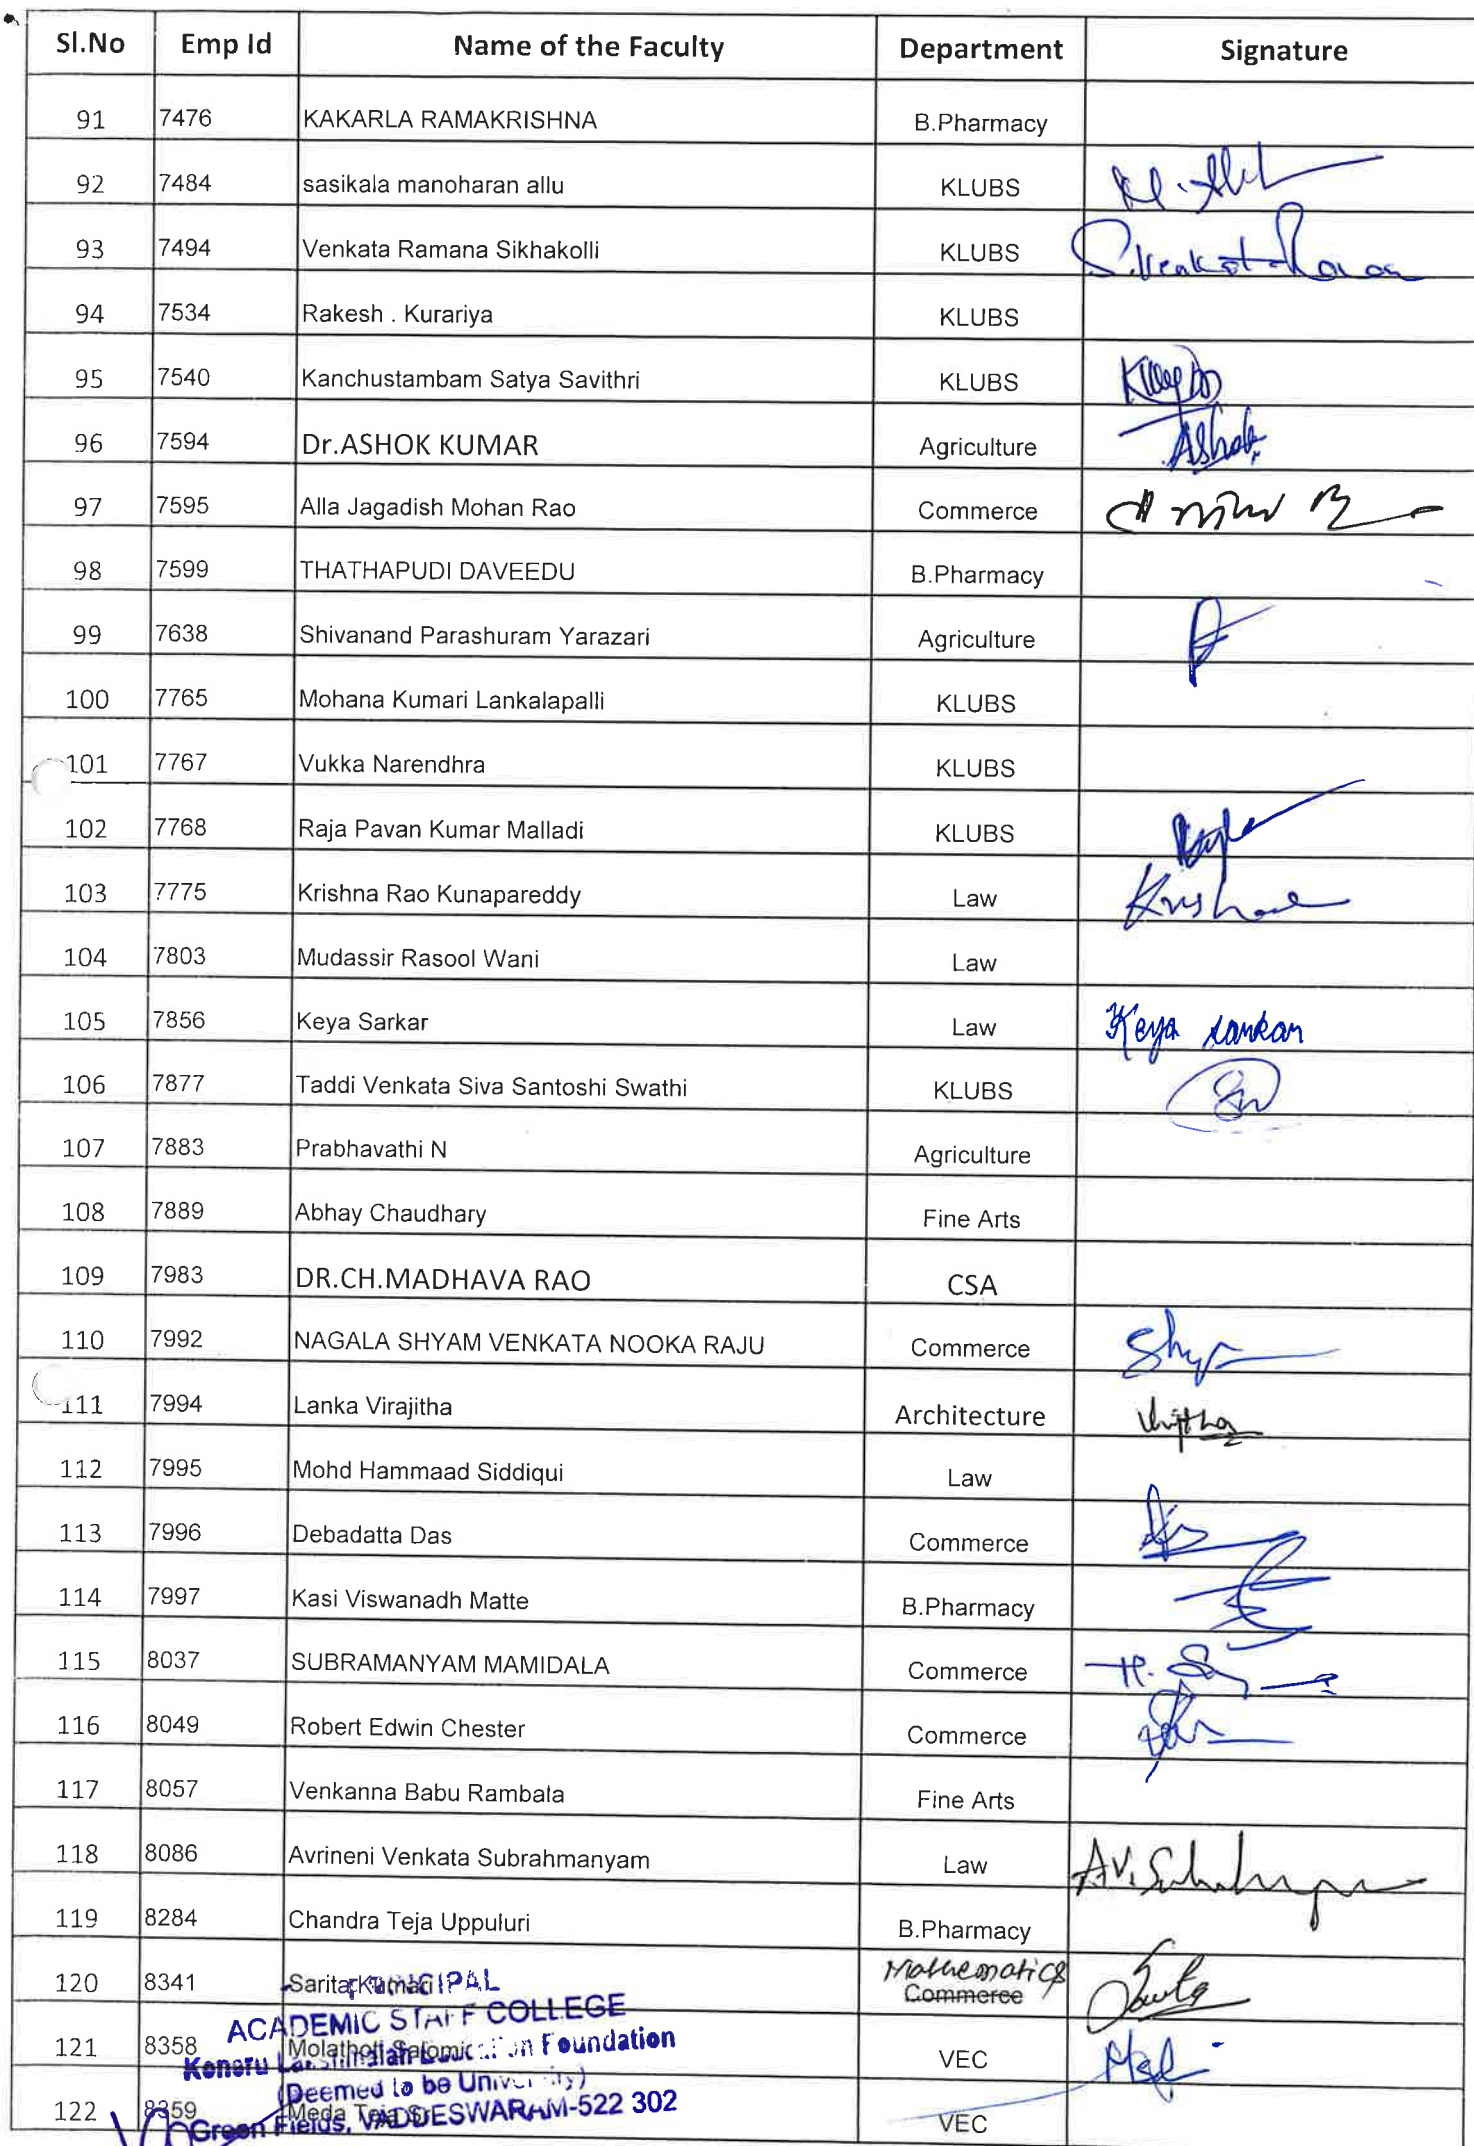 Sl.No Emp Id Name of the Faculty Department Signature
91 7476 KAKARLA RAMAKRISHNA B.Pharmacy
92 7484 sasikala manoharan allu KLUBS
93 7494 Venkata Ramana Sikhakolli KLUBS S.Venkata Ramana
94 7534 Rakesh . Kurariya KLUBS
95 7540 Kanchustambam Satya Savithri KLUBS
96 7594 Dr.ASHOK KUMAR Agriculture Ashok
97 7595 Alla Jagadish Mohan Rao Commerce
98 7599 THATHAPUDI DAVEEDU B.Pharmacy
99 7638 Shivanand Parashuram Yarazari Agriculture
100 7765 Mohana Kumari Lankalapalli KLUBS
101 7767 Vukka Narendhra KLUBS
102 7768 Raja Pavan Kumar Malladi KLUBS
103 7775 Krishna Rao Kunapareddy Law
104 7803 Mudassir Rasool Wani Law
105 7856 Keya Sarkar Law Keya Sarkar
106 7877 Taddi Venkata Siva Santoshi Swathi KLUBS
107 7883 Prabhavathi N Agriculture
108 7889 Abhay Chaudhary Fine Arts
109 7983 DR.CH.MADHAVA RAO CSA
110 7992 NAGALA SHYAM VENKATA NOOKA RAJU Commerce
111 7994 Lanka Virajitha Architecture
112 7995 Mohd Hammaad Siddiqui Law
113 7996 Debadatta Das Commerce
114 7997 Kasi Viswanadh Matte B.Pharmacy
115 8037 SUBRAMANYAM MAMIDALA Commerce
116 8049 Robert Edwin Chester Commerce
117 8057 Venkanna Babu Rambala Fine Arts
118 8086 Avrineni Venkata Subrahmanyam Law
119 8284 Chandra Teja Uppuluri B.Pharmacy
Mathematics
120 8341 Sarita Kumari Commerce
PRINCIPAL
ACADEMIC STAFF COLLEGE
121 8358 VEC
Koneru Lakshmaiah Education Foundation
(Deemed to be University)
122 8359 Meda Teja VEC
Green Fields, VADDESWARAM-522 302